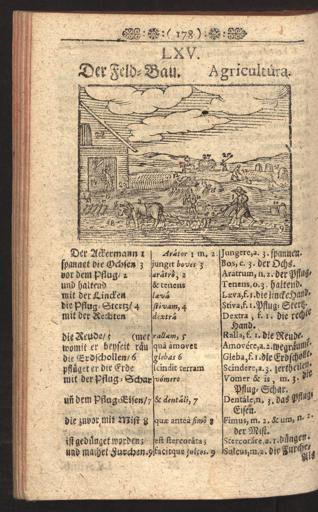 ( 178 )
LXV.
Der Feld-Bau. Agricultúra.
Der Ackermann 1 Arátor 1 m. 2 Jungere, a. 3. spannen.
spannet die Ochsen 3 jungit boves 3 Bos, c. 3. der Ochs.
vor dem Pflug/ 2 arátró, 2 Aratrum, n. 2. der Pflug.
und haltend & tenens Tenens, o. 3. haltend.
mit der Lincken lævâ Læva, f. 1. die lincke Hand.
die Pflug-Steertz/ 4 stivam, 4 Stiva, f. 1. Pflug-Steertz.
mit der Rechten dextrâ Dextra, f. 1. die rechte
Hand.
die Reude/ 5 (met rallam, 5 Ralla, f. 1. die Reude.
womit er beyseit räu quâ amovet Amovére, a. 2. wegräumen.
die Erdschollen/ 6 glebas 6 Gleba, f. 1. die Erdscholle.
pflüget er die Erde scindit terram Scindere, a. 3. zertheilen.
mit der Pflug-Schar vómere Vomer & is, m. 3. die
Pflug-Schar.
uñ dem Pflug-Eisen/ 7 & dentáli, 7 Dentále, n. 3. das Pflug-
Eisen.
die zuvor mit Mist 8 quæ anteà fimô 8 Fimus, m. 2. & um, n. 2.
der Mist.
ist gedünget worden; est stercoráta; Stercoráre, a. 1. düngen.
und machet Furchen. 9 facitque sulcos. 9 Sulcus, m. 2. die Furche.
Als